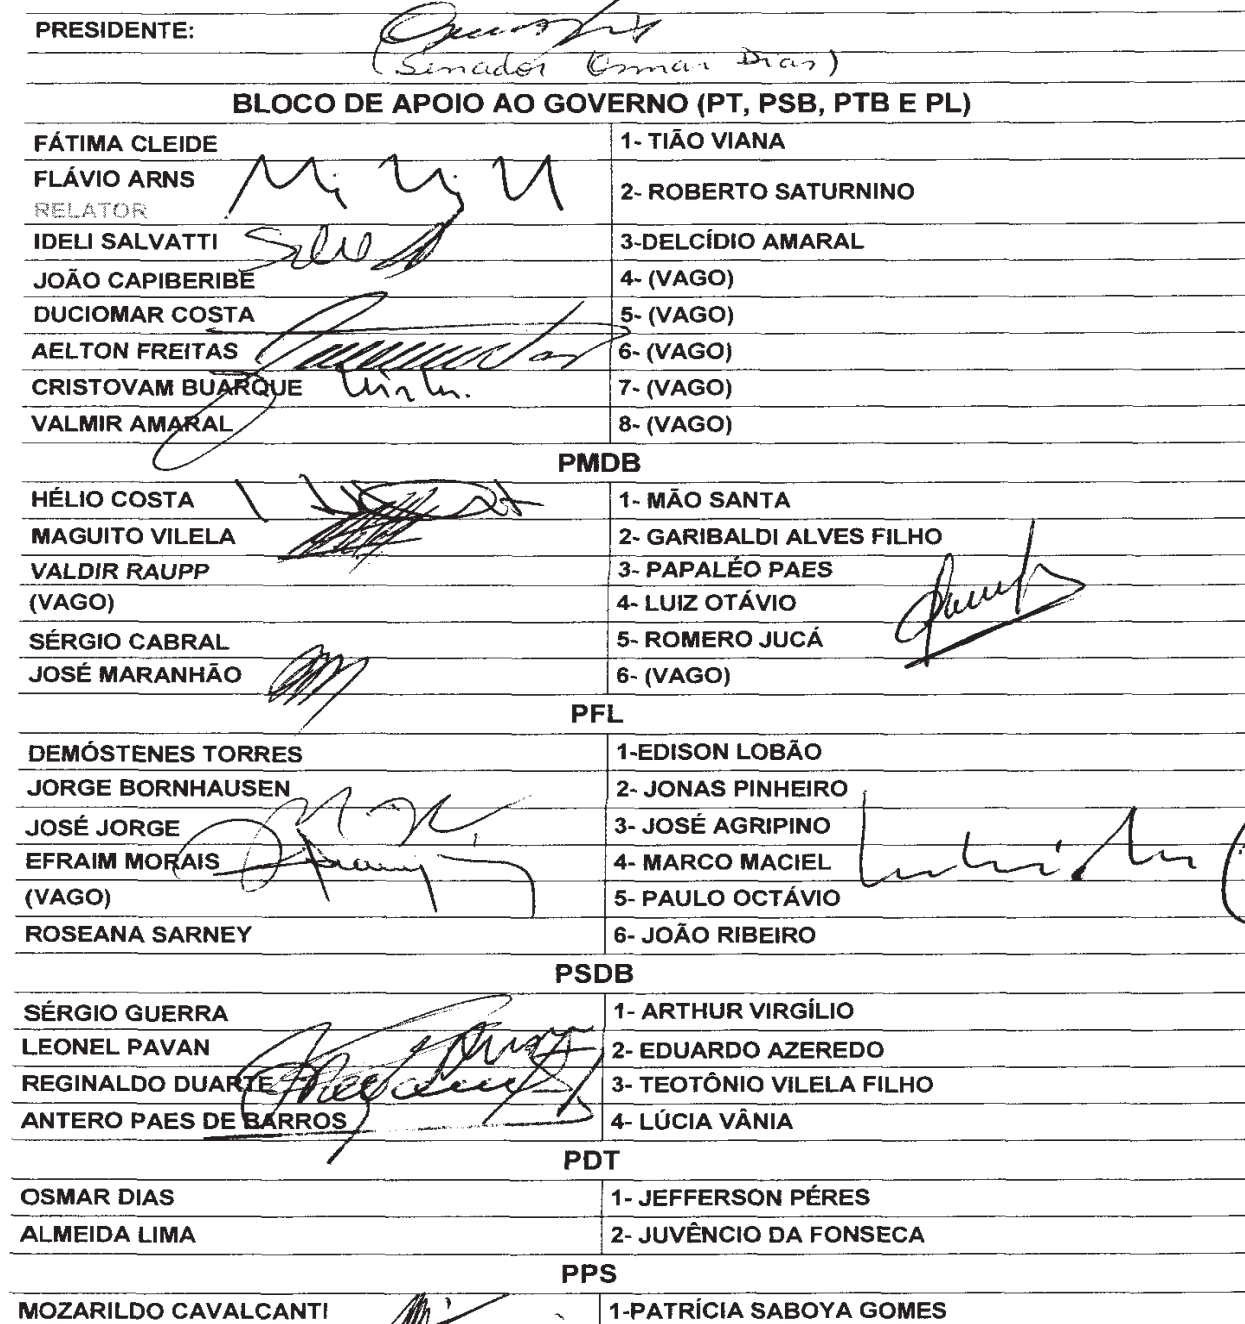 PRESIDENTE:
(Senador Osmar Dias)
BLOCO DE APOIO AO GOVERNO (PT, PSB, PTB E PL)
FÁTIMA CLEIDE 1- TIÃO VIANA
FLÁVIO ARNS
RELATOR 2- ROBERTO SATURNINO
IDELI SALVATTI 3-DELCÍDIO AMARAL
JOÃO CAPIBERIBE 4- (VAGO)
DUCIOMAR COSTA 5- (VAGO)
AELTON FREITAS 6- (VAGO)
CRISTOVAM BUARQUE 7- (VAGO)
VALMIR AMARAL 8- (VAGO)
PMDB
HÉLIO COSTA 1- MÃO SANTA
MAGUITO VILELA 2- GARIBALDI ALVES FILHO
VALDIR RAUPP 3- PAPALÉO PAES
(VAGO) 4- LUIZ OTÁVIO
SÉRGIO CABRAL 5- ROMERO JUCÁ
JOSÉ MARANHÃO 6- (VAGO)
PFL
DEMÓSTENES TORRES 1-EDISON LOBÃO
JORGE BORNHAUSEN 2- JONAS PINHEIRO
JOSÉ JORGE 3- JOSÉ AGRIPINO
EFRAIM MORAIS 4- MARCO MACIEL
(VAGO) 5- PAULO OCTÁVIO
ROSEANA SARNEY 6- JOÃO RIBEIRO
PSDB
SÉRGIO GUERRA 1- ARTHUR VIRGÍLIO
LEONEL PAVAN 2- EDUARDO AZEREDO
REGINALDO DUARTE 3- TEOTÔNIO VILELA FILHO
ANTERO PAES DE BARROS 4- LÚCIA VÂNIA
PDT
OSMAR DIAS 1- JEFFERSON PÉRES
ALMEIDA LIMA 2- JUVÊNCIO DA FONSECA
PPS
MOZARILDO CAVALCANTI 1-PATRÍCIA SABOYA GOMES